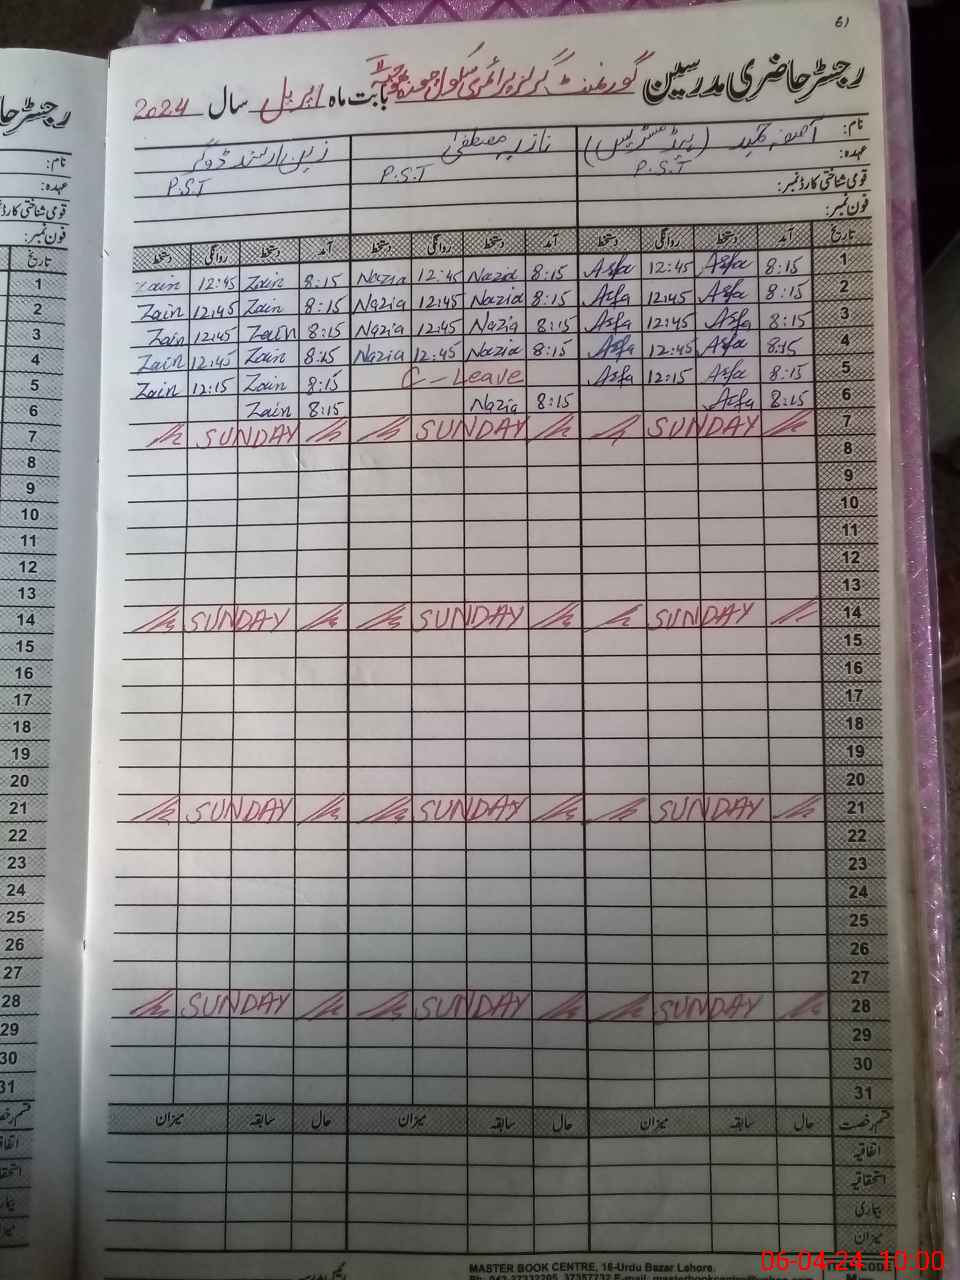 61
رجسٹر حاضری مدرسین گورنمنٹ گرلز پرائمری سکول بابت ماہ اپریل سال 2024
نام: آصفہ (ہیڈ مسٹریس) نازیہ مصطفیٰ زین ارشد ڈوگر
عہدہ: P.S.T P.S.T P.S.T
قومی شناختی کارڈ نمبر:
فون نمبر:
تاریخ آمد دستخط روانگی دستخط آمد دستخط روانگی دستخط آمد دستخط روانگی دستخط
1 8:15 Asfa 12:45 Asfa 8:15 Nazia 12:45 Nazia 8:15 Zain 12:45 Zain
2 8:15 Asfa 12:45 Asfa 8:15 Nazia 12:45 Nazia 8:15 Zain 12:45 Zain
3 8:15 Asfa 12:45 Asfa 8:15 Nazia 12:45 Nazia 8:15 Zain 12:45 Zain
4 8:15 Asfa 12:45 Asfa 8:15 Nazia 12:45 Nazia 8:15 Zain 12:45 Zain
5 8:15 Asfa 12:15 Asfa C-Leave 8:15 Zain 12:15 Zain
6 8:15 Asfa 8:15 Nazia 8:15 Zain
7 SUNDAY SUNDAY SUNDAY
8
9
10
11
12
13
14 SUNDAY SUNDAY SUNDAY
15
16
17
18
19
20
21 SUNDAY SUNDAY SUNDAY
22
23
24
25
26
27
28 SUNDAY SUNDAY SUNDAY
29
30
31
قسم رخصت حال سابقہ میزان حال سابقہ میزان حال سابقہ میزان
اتفاقیہ
استحقاقیہ
بیماری
میزان
MASTER BOOK CENTRE, 16-Urdu Bazar Lahore.
06-04-24 10:00
رجسٹر حا
نام:
عہدہ:
قومی شناختی کارڈ
فون نمبر:
تاریخ
1
2
3
4
5
6
7
8
9
10
11
12
13
14
15
16
17
18
19
20
21
22
23
24
25
26
27
28
29
30
31
قسم رخصت